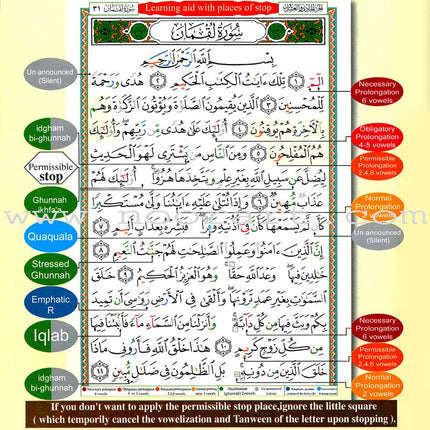 Learning aid with places of stop
سُورَةُ لُقْمَانَ
بِسْمِ ٱللَّهِ ٱلرَّحْمَٰنِ ٱلرَّحِيمِ
الٓمٓ ١ تِلْكَ ءَايَٰتُ ٱلْكِتَٰبِ ٱلْحَكِيمِ ٢ هُدًى وَرَحْمَةً
لِّلْمُحْسِنِينَ ٣ ٱلَّذِينَ يُقِيمُونَ ٱلصَّلَوٰةَ وَيُؤْتُونَ ٱلزَّكَوٰةَ وَهُم
بِٱلْءَاخِرَةِ هُمْ يُوقِنُونَ ٤ أُوْلَٰٓئِكَ عَلَىٰ هُدًى مِّن رَّبِّهِمْ وَأُوْلَٰٓئِكَ
هُمُ ٱلْمُفْلِحُونَ ٥ وَمِنَ ٱلنَّاسِ مَن يَشْتَرِى لَهْوَ ٱلْحَدِيثِ
لِيُضِلَّ عَن سَبِيلِ ٱللَّهِ بِغَيْرِ عِلْمٍ وَيَتَّخِذَهَا هُزُوًا أُوْلَٰٓئِكَ لَهُمْ
عَذَابٌ مُّهِينٌ ٦ وَإِذَا تُتْلَىٰ عَلَيْهِ ءَايَٰتُنَا وَلَّىٰ مُسْتَكْبِرًا
كَأَن لَّمْ يَسْمَعْهَا كَأَنَّ فِىٓ أُذُنَيْهِ وَقْرًا فَبَشِّرْهُ بِعَذَابٍ أَلِيمٍ ٧
إِنَّ ٱلَّذِينَ ءَامَنُواْ وَعَمِلُواْ ٱلصَّٰلِحَٰتِ لَهُمْ جَنَّٰتُ ٱلنَّعِيمِ ٨
خَٰلِدِينَ فِيهَا وَعْدَ ٱللَّهِ حَقًّا وَهُوَ ٱلْعَزِيزُ ٱلْحَكِيمُ ٩ خَلَقَ
ٱلسَّمَٰوَٰتِ بِغَيْرِ عَمَدٍ تَرَوْنَهَا وَأَلْقَىٰ فِى ٱلْأَرْضِ رَوَٰسِىَ أَن تَمِيدَ
بِكُمْ وَبَثَّ فِيهَا مِن كُلِّ دَآبَّةٍ وَأَنزَلْنَا مِنَ ٱلسَّمَآءِ مَآءً فَأَنۢبَتْنَا فِيهَا
مِن كُلِّ زَوْجٍ كَرِيمٍ ١٠ هَٰذَا خَلْقُ ٱللَّهِ فَأَرُونِى مَاذَا
خَلَقَ ٱلَّذِينَ مِن دُونِهِۦ بَلِ ٱلظَّٰلِمُونَ فِى ضَلَٰلٍ مُّبِينٍ ١١
Un announced
(Silent)
idgham
bi-ghunnah
Permissible
stop
Ghunnah
ikhfa'a
Quaquala
Stressed
Ghunnah
Emphatic
R
Iqlab
idgham
bi-ghunnah
Necessary
Prolongation
6 vowels
Obligatory
Prolongation
4-5 vowels
Permissible
Prolongation
2,4,6 vowels
Normal
Prolongation
2 vowels
Un announced
(Silent)
Necessary
Prolongation
6 vowels
Permissible
Prolongation
2,4,6 vowels
Normal
Prolongation
2 vowels
If you don't want to apply the permissible stop place,ignore the little square
( which temporily cancel the vowelization and Tanween of the letter upon stopping ).